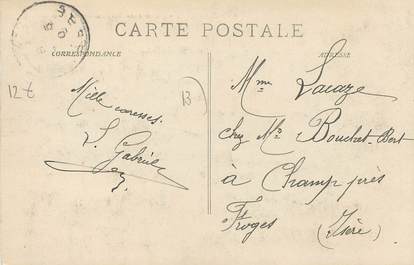 CARTE POSTALE
CORRESPONDANCE
ADRESSE
12€
13
Mille caresses
L. Gabriel
Mme Lacaze
chez Mr Bouchet-Bert
à Champ près
Froges
(Isère)